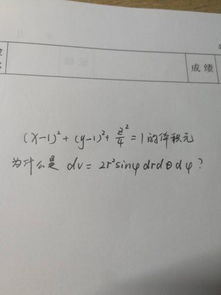 成绩
(x-1)²+(y-1)²+z²/4=1的体积元
为什么是 dv= 2r²sinφ drdθdφ?